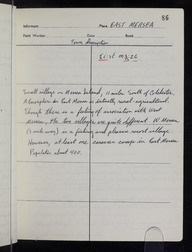 86
Informant Place EAST MERSEA
Field Worker Date Book
Town Description
Small village on Mersea Island, 11 miles South of Colchester.
Atmosphere in East Mersea is definitely rural - agricultural.
Though there is a feeling of association with West
Mersea, the two villages are quite different. W. Mersea
is a and pleasure resort village.
However, at least one common escape in East Mersea
Population about 400.